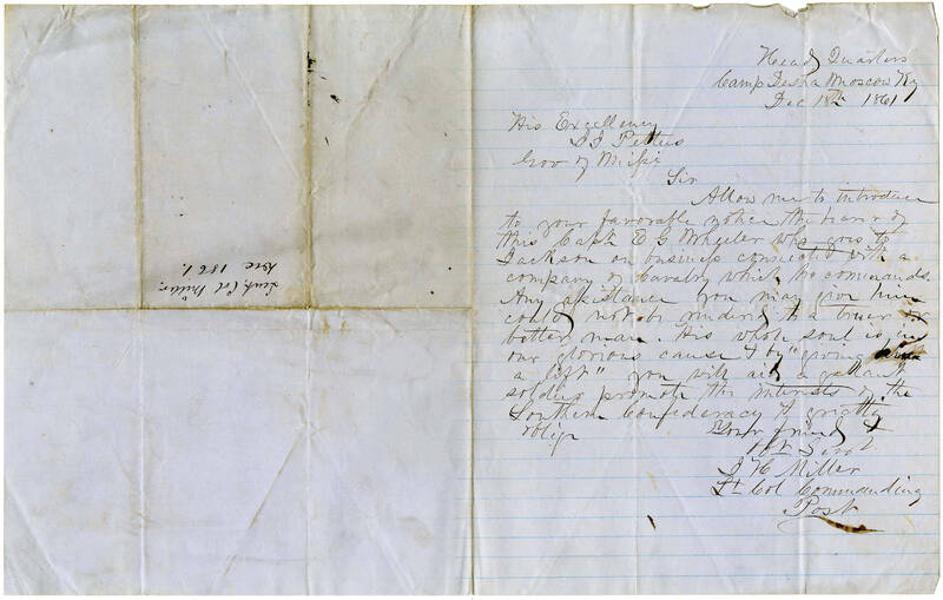 Head Quarters
Camp Desha Moscow Ky
Dec 18th 1861
His Excellency
J J Pettus
Gov of Missi
Sir
Allow me to introduce
to your favorable notice the bearer of
this Capt E G Wheeler who goes to
Jackson on business connected with a
company of Cavalry which he commands.
Any assistance you may give him
could not be rendered to a truer or
better man. His whole soul is in
our glorious cause & by "giving him
a lift" you will aid a gallant
soldier promote the interests of the
Southern Confederacy & greatly
oblige Your friend &
Obt Servt
J H Miller
Lt Col Commanding
Post
Lieut Col Miller
Dec 1861.